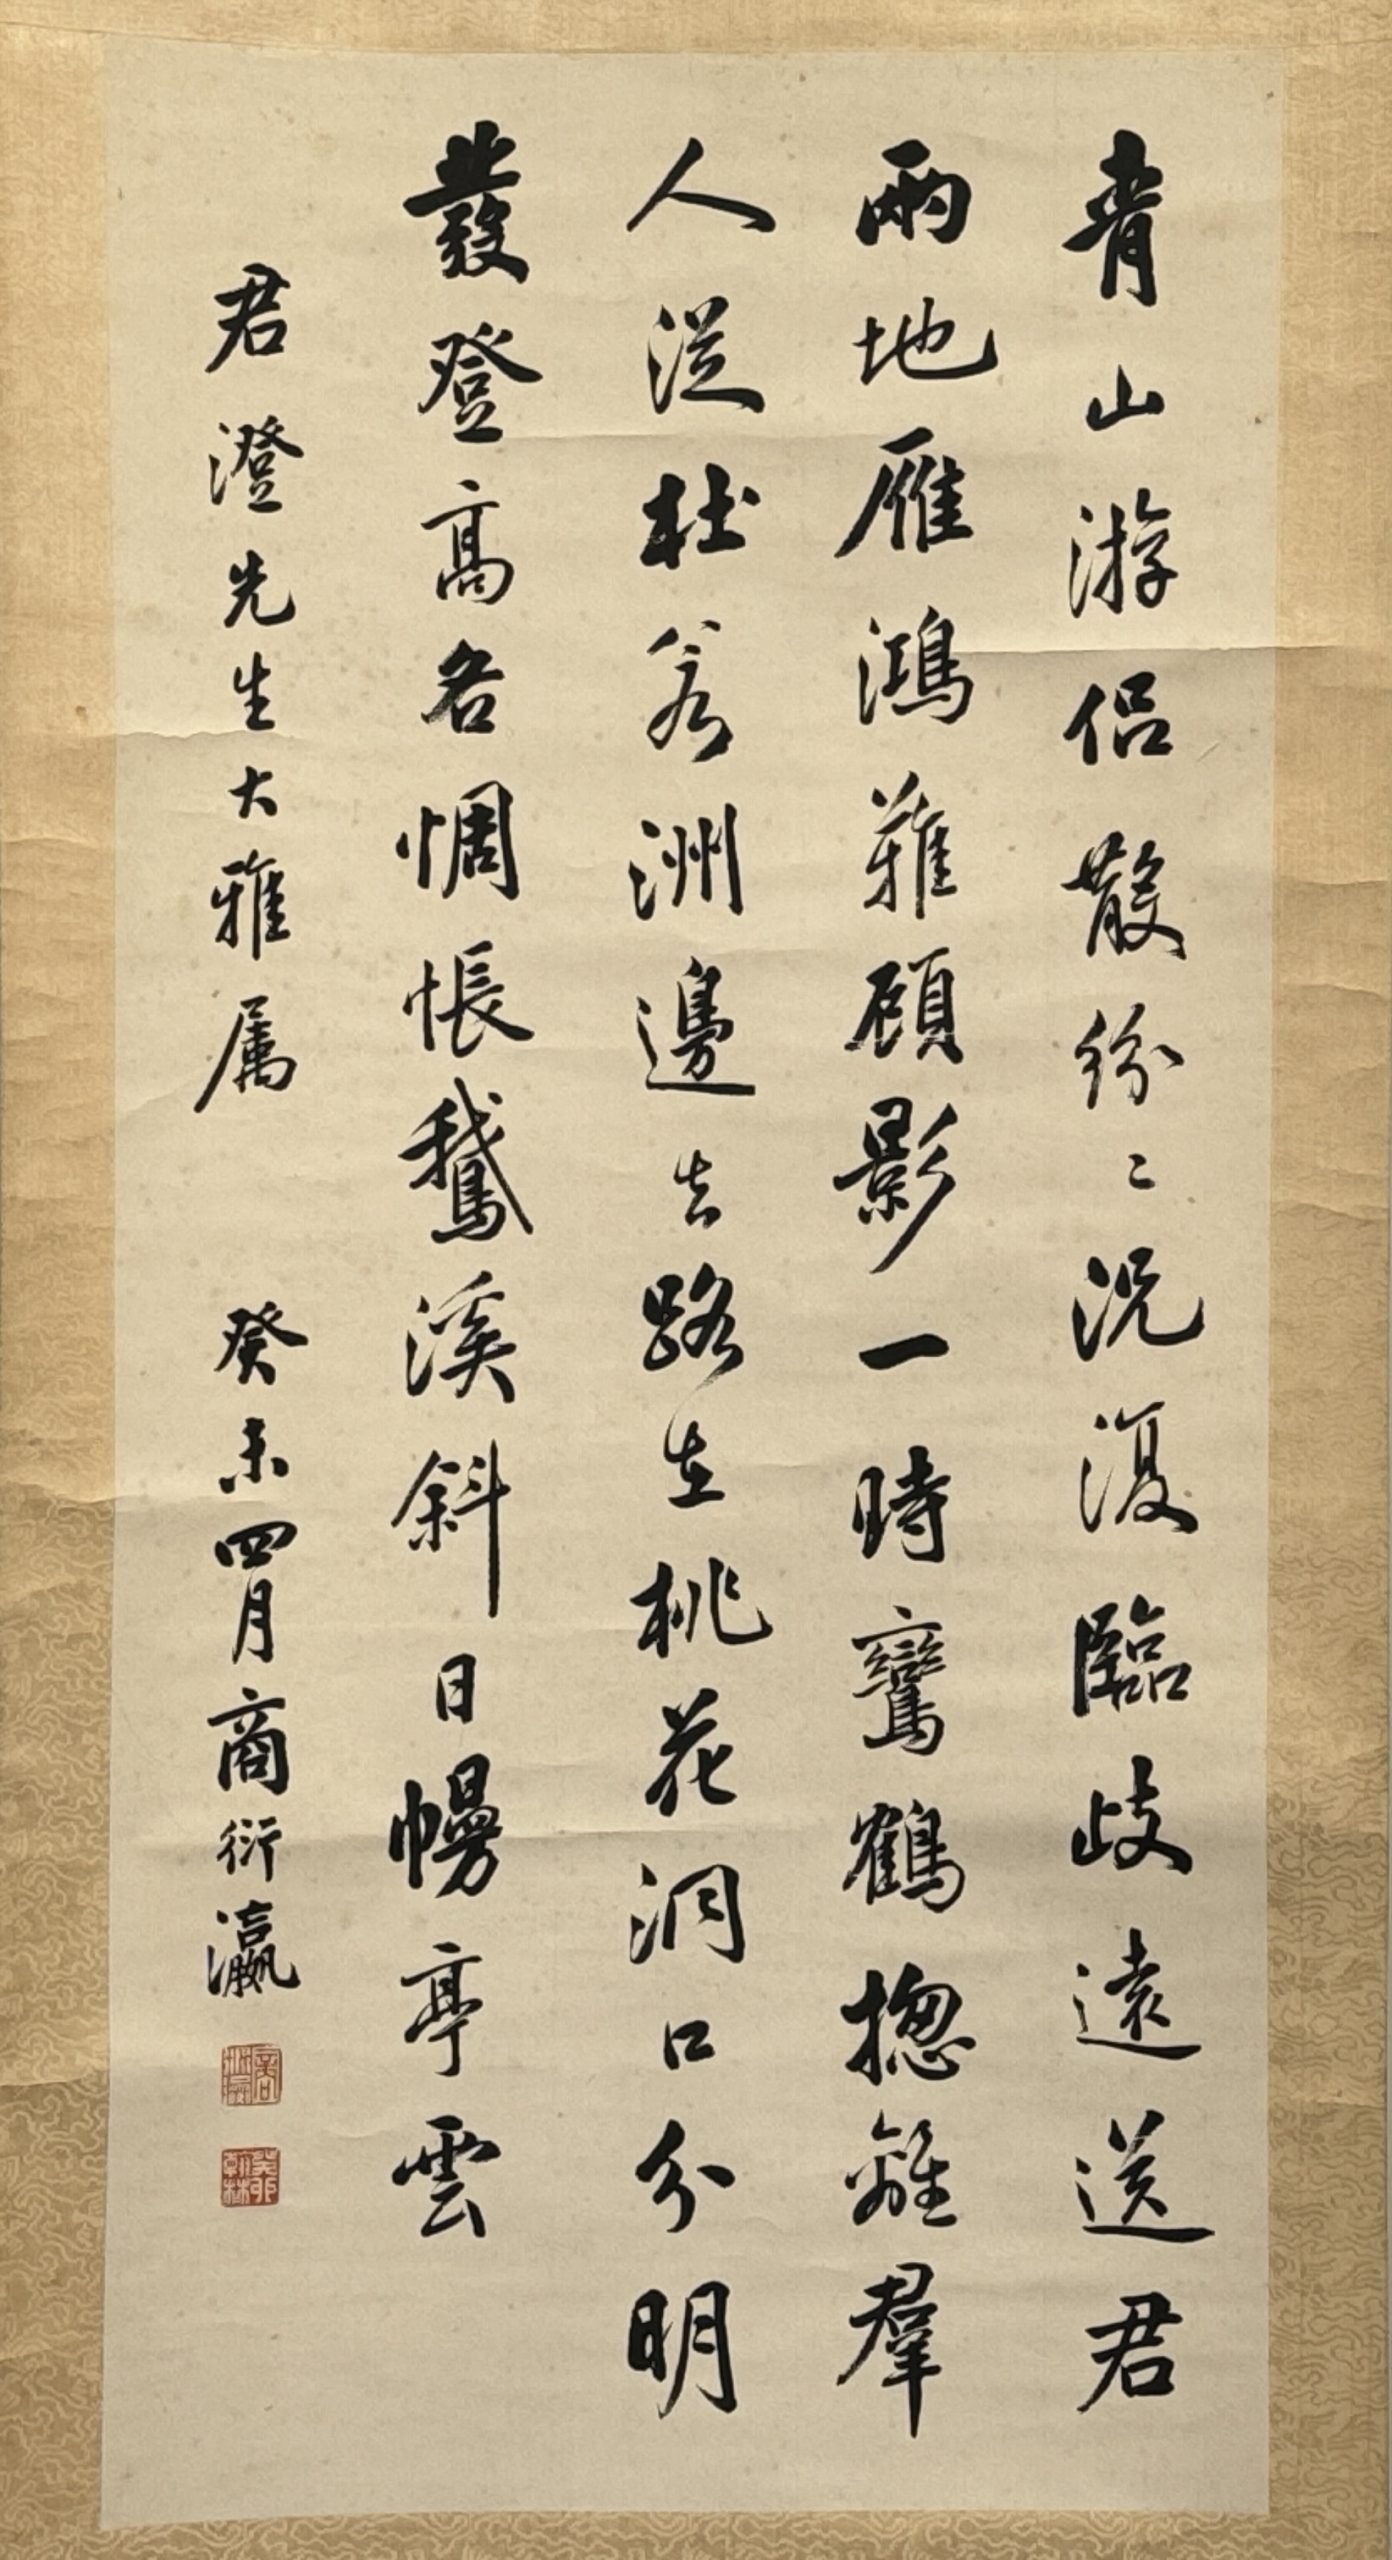 青山游侣散紛〻況復臨歧遠送君
兩地雁鴻難顧影一時鸞鶴揔離羣
人從杜若洲邊去路在桃花洞口分明
發登高各惆悵鵞溪斜日幔亭雲
君澄先生大雅属 癸未四月商衍瀛
商衍瀛
癸卯翰林